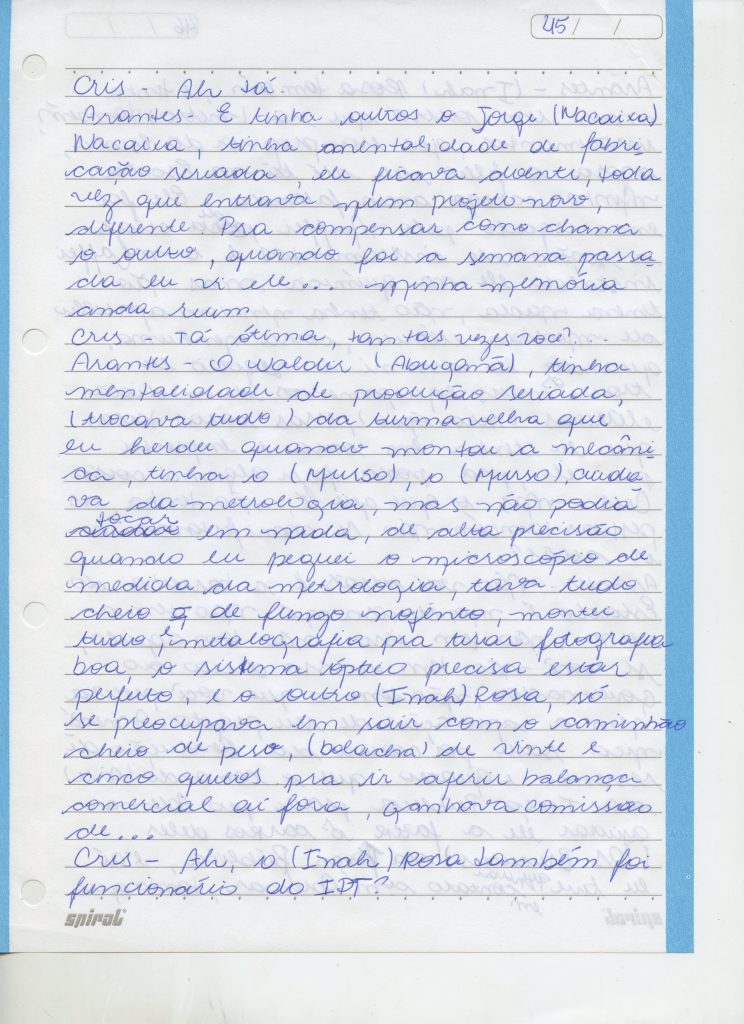 45/ /
Cris - Ah tá.
Arantes - E tinha outros o Jorge (Nacaixa)
Nacaixa, tinha mentalidade de fabri-
cação seriada, eu ficava doente, toda
vez que entrava num projeto novo,
diferente Pra compensar como chama
o outro, quando foi a semana passa-
da eu vi ele... minha memória
anda ruim
Cris - Tá ótima, tantas vezes você?...
Arantes - O Waldir (Abugamã), tinha
mentalidade de produção seriada,
(trocava tudo) da turma velha que
eu herdei quando montou a mecâni-
ca, tinha o (Murso), o (Murso), cuida-
va da metrologia, mas não podia
tocar em nada, de alta precisão
quando eu peguei o microscópio de
medida da metrologia, tava tudo
cheio de fungo nojento, montei
tudo, e metalografia pra tirar fotografia
boa, o sistema óptico precisa estar
perfeito, e o outro (Inah) Rosa, só
se preocupava em sair com o caminhão
cheio de peso, (bolacha) de vinte e
cinco quilos pra ir aferir balança
comercial aí fora, ganhava comissão
de...
Cris - Ah, o (Inah) Rosa também foi
funcionário do IPT?
spiral